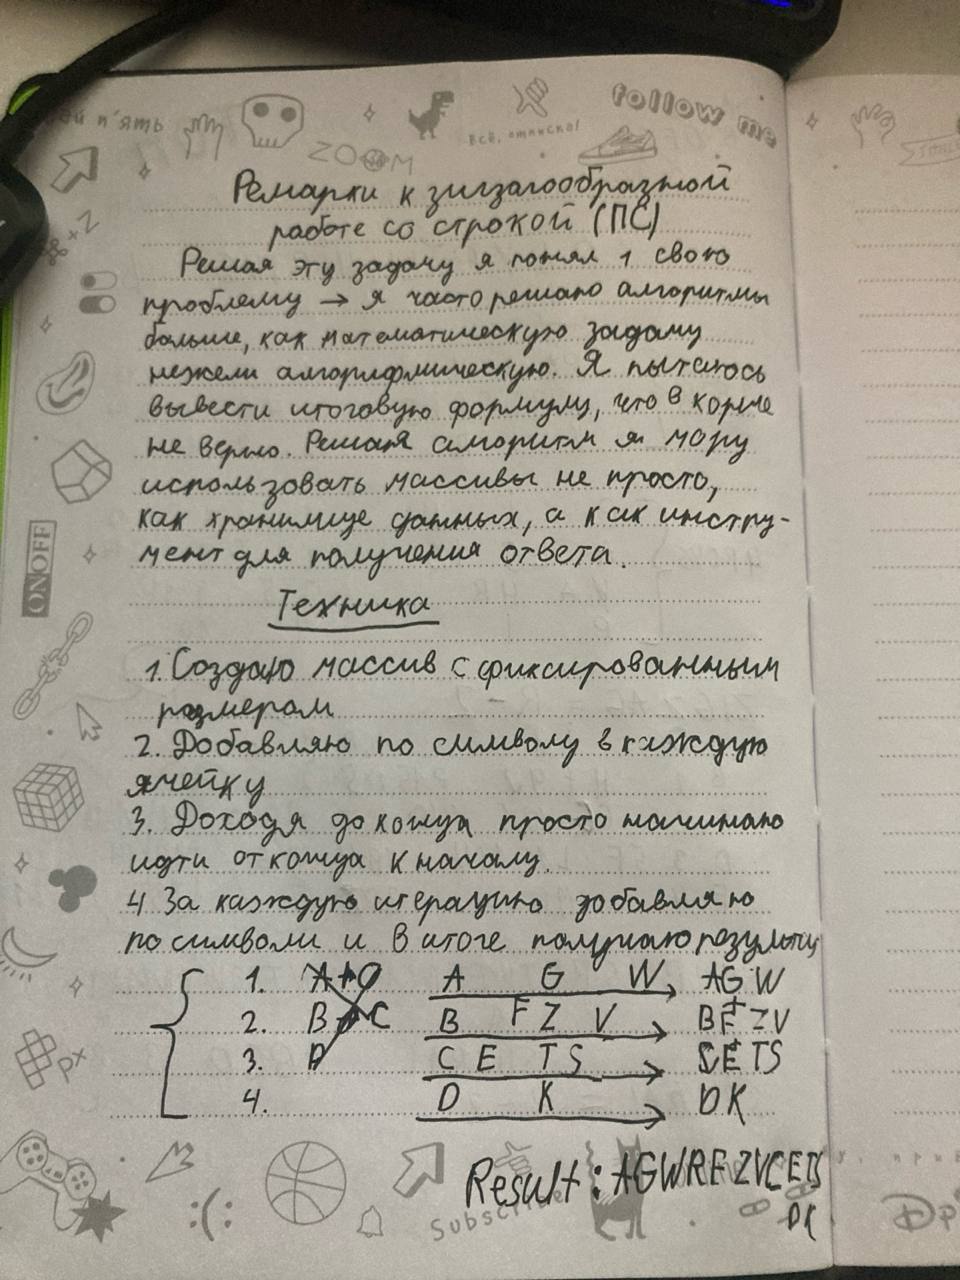 ай п'ять
ZOOM
Всё, отписка!
follow me
+Z
Ремарки к зигзагообразной
работе со строкой (ПС)
Решая эту задачу я понял 1 свою
проблему → я часто решаю алгоритмы
больше, как математическую задачу
нежели алгорифмическую. Я пытаюсь
вывести итоговую формулу, что в корне
не верно. Решая алгоритм я могу
использовать массивы не просто,
как хранилище данных, а как инстру-
мент для получения ответа.
ONOFF
Техника
1. Создаю массив с фиксированным
размером
2. Добавляю по символу в каждую
ячейку
3. Доходя до конца просто начинаю
идти от конца к началу.
4 За каждую итерацию добавляю
по символи и в итоге получаю результ
1. A G W AGW
2. B C B F Z V BF ZV
3. C E T S CETS
4. D K DK
px
Result: AGWRFZVCETS
DK
:(:
Subscribe